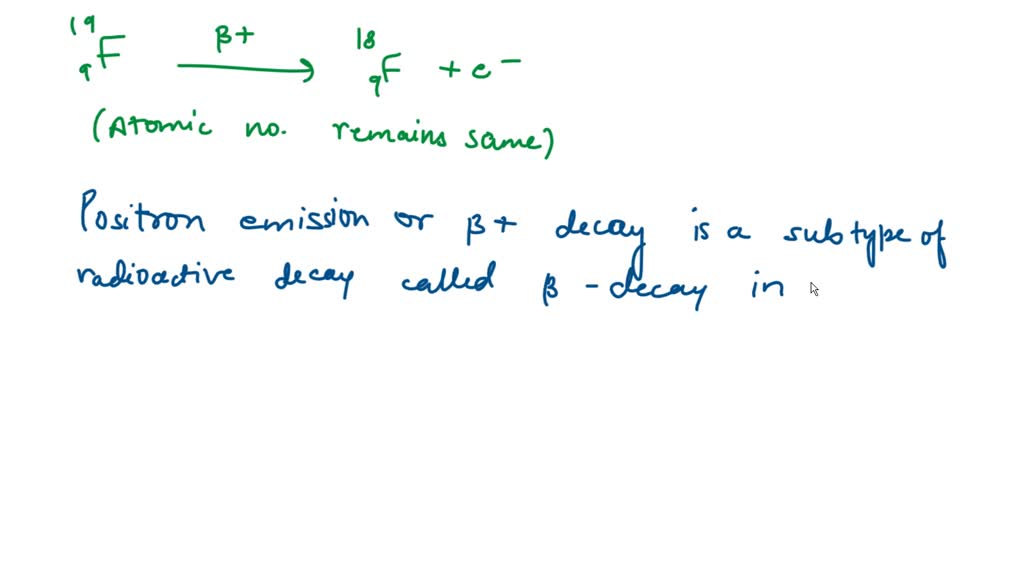 19 9 F β+ → 18 9 F + e −
(Atomic no. remains same)
Positron emission or β+ decay is a subtype of
radioactive decay called β - decay in